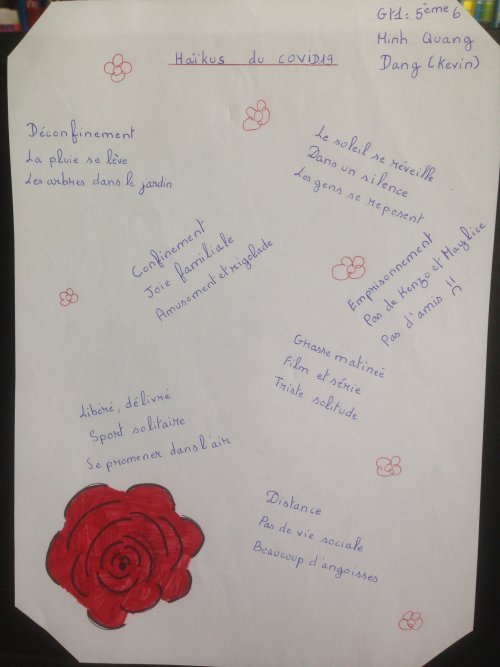 Gr1: 5ème6
Minh Quang
Dang (Kevin)
Haïkus du COVID19
Déconfinement
La pluie se lève
Les arbres dans le jardin
Le soleil se réveille
Dans un silence
Les gens se reposent
Confinement
Joie familiale
Amusement et rigolade
Emprisonnement
Pas de Kenzo et Maylice
Pas d'amis
Grasse matinée
Film et série
Triste solitude
Libéré, délivré
Sport solitaire
Se promener dans l'air
Distance
Pas de vie sociale
Beaucoup d'angoisses